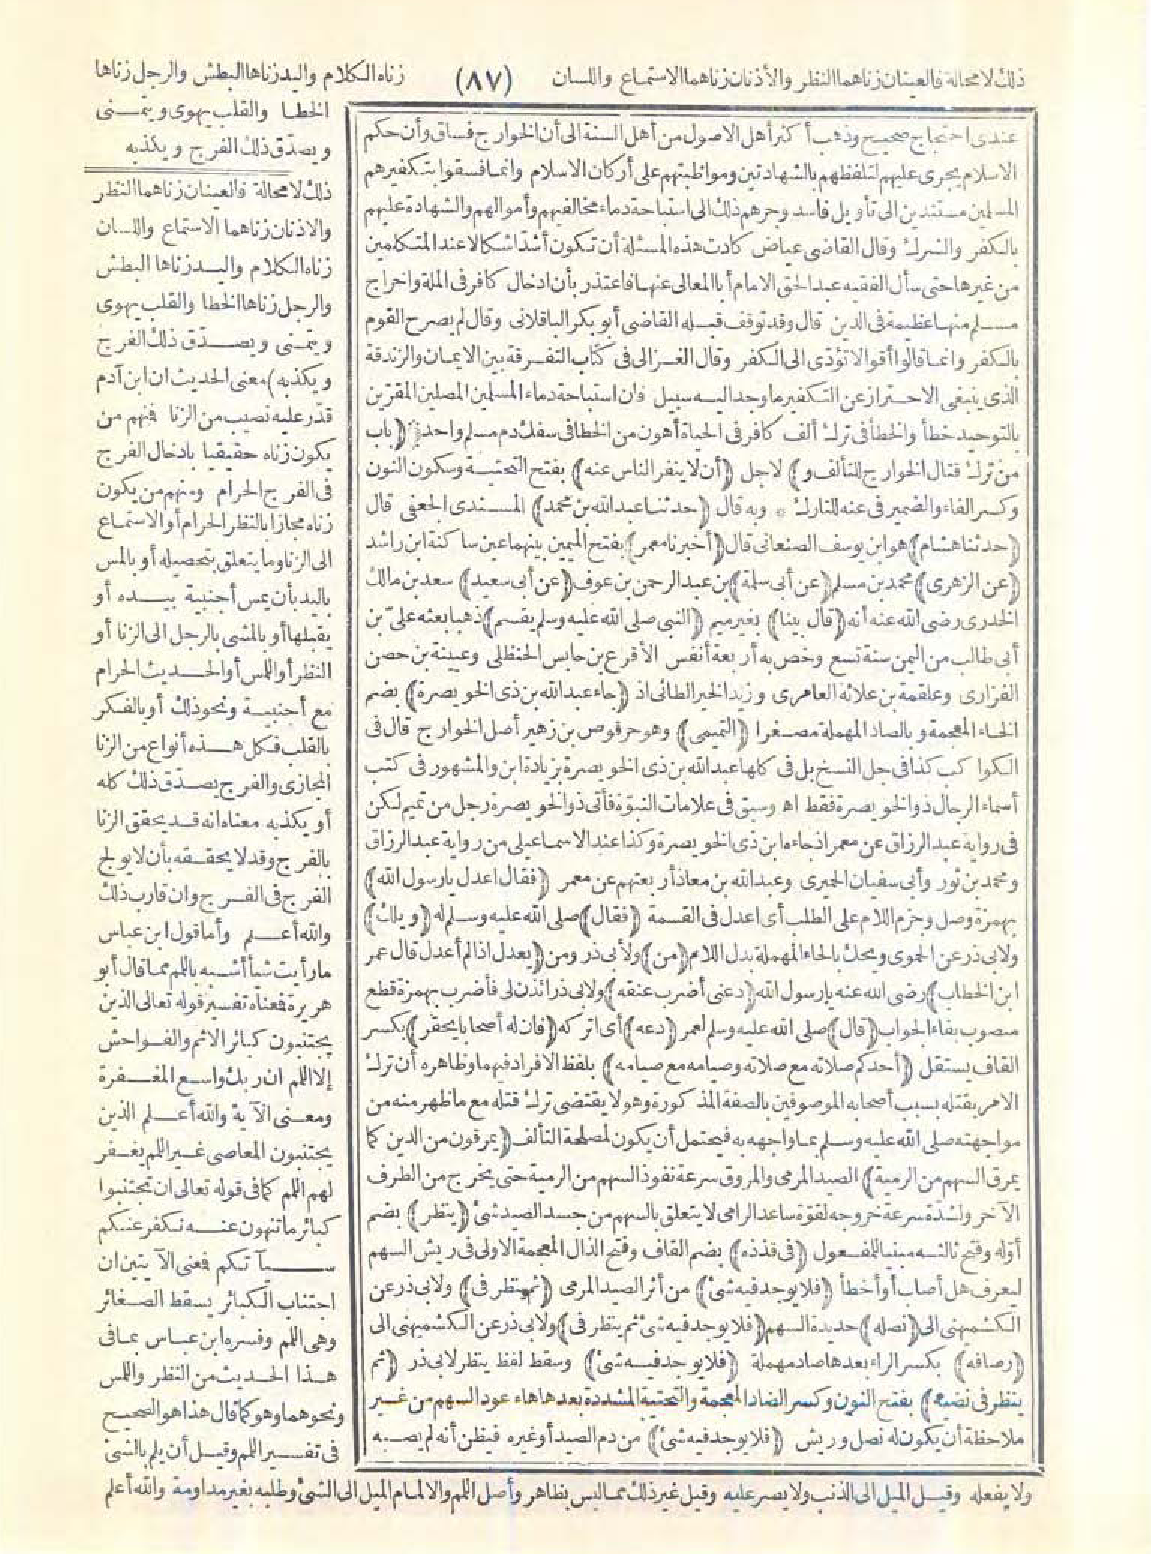 ذلك لا محالة فالعينان زناهما النظر والأذنان زناهما الاستماع واللسان (٨٧) زناه الكلام واليد زناها البطش والرجل زناها
الخطا والقلب يهوى ويتمنى
ويصدّق ذلك الفرج ويكذبه
عندى احتجاج صحيح وذهب أكثر أهل الاصول من أهل السنة الى أن الخوارج فساق وأن حكم
الاسلام يجرى عليهم لتلفظهم بالشهادتين ومواظبتهم على أركان الاسلام وانما فسقوا بتكفيرهم
المسلمين مستندين الى تأويل فاسد وجرهم ذلك الى استباحة دماء مخالفيهم وأموالهم والشهادة عليهم
بالكفر والشرك وقال القاضى عياض كادت هذه المسئلة أن تكون أشدّ اشكالا عند المتكلمين
من غيرها حتى سأل الفقيه عبد الحق الامام أبا المعالى عنها فاعتذر بأن ادخال كافر فى الملة واخراج
مسلم منها عظيمة فى الدين قال وقد توقف قبله القاضى أبو بكر الباقلانى وقال لم يصرح القوم
بالكفر وانما قالوا أقوالا تؤدّى الى الكفر وقال الغزالى فى كتاب التفرقة بين الايمان والزندقة
الذى ينبغى الاحتراز عن التكفير ما وجد اليه سبيل فان استباحة دماء المسلمين المصلين المقرّين
بالتوحيد خطأ والخطأ فى ترك ألف كافر فى الحياة أهون من الخطا فى سفك دم مسلم واحد * (باب
من ترك قتال الخوارج للتألف و) لاجل (أن لا ينفر الناس عنه) بفتح التحتية وسكون النون
وكسر الفاء والضمير فى عنه للتارك * وبه قال (حدثنا عبد الله بن محمد) المسندى الجعفى قال
(حدثنا هشام) هو ابن يوسف الصنعانى قال (أخبرنا معمر) بفتح الميمين بينهما عين ساكنة ابن راشد
(عن الزهرى) محمد بن مسلم (عن أبى سلمة) بن عبد الرحمن بن عوف (عن أبى سعيد) سعد بن مالك
الخدرى رضى الله عنه أنه (قال بينا) بغير ميم (النبى صلى الله عليه وسلم يقسم) ذهبا بعثه علىّ بن
أبى طالب من اليمن سنة تسع وخص به أربعة أنفس الأقرع بن حابس الحنظلى وعيينة بن حصن
الفزارى وعلقمة بن علاثة العامرى وزيد الخير الطائى اذ (جاء عبد الله بن ذى الخويصرة) بضم
الخاء المعجمة وبالصاد المهملة مصغرا (التميمى) وهو حرقوص بن زهير أصل الخوارج قال فى
الكواكب كذا فى جل النسخ بل فى كلها عبد الله بن ذى الخويصرة بزيادة ابن والمشهور فى كتب
أسماء الرجال ذو الخويصرة فقط اه وسبق فى علامات النبوّة فأتى ذو الخويصرة رجل من تميم لكن
فى رواية عبد الرزاق عن معمر اذ جاءه ابن ذى الخويصرة وكذا عند الاسماعيلى من رواية عبد الرزاق
ومحمد بن ثور وأبى سفيان الحميرى وعبد الله بن معاذ أربعتهم عن معمر (فقال اعدل يا رسول الله)
بهمزة وصل وجزم اللام على الطلب أى اعدل فى القسمة (فقال) صلى الله عليه وسلم له (ويلك)
ولابى ذر عن الحموى ويحك بالحاء المهملة بدل اللام (من) ولأبى ذر ومن (يعدل اذا لم أعدل قال عمر
ابن الخطاب) رضى الله عنه يا رسول الله (دعنى أضرب عنقه) ولابى ذر ائذن لى فأضرب بهمزة قطع
منصوب بفاء الجواب (قال) صلى الله عليه وسلم لعمر (دعه) أى اتركه (فان له أصحابا يحقر) بكسر
القاف يستقل (أحدكم صلاته مع صلاته وصيامه مع صيامه) بلفظ الافراد فيهما وظاهره أن ترك
الامر بقتله بسبب أصحابه الموصوفين بالصفة المذكورة وهو لا يقتضى ترك قتله مع ما ظهر منه من
مواجهته صلى الله عليه وسلم بما واجهه به فيحتمل أن يكون لمصلحة التألف (يمرقون من الدين كما
يمرق السهم من الرمية) الصيد المرمى والمروق سرعة نفوذ السهم من الرمية حتى يخرج من الطرف
الآخر ولشدّة سرعة خروجه لقوّة ساعد الرامى لا يتعلق بالسهم من جسد الصيد شئ (ينظر) بضم
أوّله وفتح ثالثه مبنيا للمفعول (فى قذذه) بضم القاف وفتح الذال المعجمة الاولى فى ريش السهم
ليعرف هل أصاب أو أخطأ (فلا يوجد فيه شئ) من أثر الصيد المرمى (ثم ينظر فى) ولابى ذر عن
الكشميهنى الى (نصله) حديدة السهم (فلا يوجد فيه شئ ثم ينظر فى) ولابى ذر عن الكشميهنى الى
(رصافه) بكسر الراء بعدها صاد مهملة (فلا يوجد فيه شئ) وسقط لفظ ينظر لابى ذر (ثم
ينظر فى نضيه) بفتح النون وكسر الضاد المعجمة والتحتية المشددة بعدها هاء عود السهم من غير
ملاحظة أن يكون له نصل وريش (فلا يوجد فيه شئ) من دم الصيد أو غيره فيظن أنه لم يصبه
ذلك لا محالة فالعينان زناهما النظر
والاذنان زناهما الاستماع واللسان
زناه الكلام واليد زناها البطش
والرجل زناها الخطا والقلب يهوى
ويتمنى ويصدّق ذلك الفرج
ويكذبه) معنى الحديث ان ابن آدم
قدّر عليه نصيب من الزنا فمنهم من
يكون زناه حقيقيا بادخال الفرج
فى الفرج الحرام ومنهم من يكون
زناه مجازا بالنظر الحرام أو الاستماع
الى الزنا وما يتعلق بتحصيله أو بالمس
باليد بأن يمس أجنبية بيده أو
يقبلها أو بالمشى بالرجل الى الزنا أو
النظر أو اللمس أو الحديث الحرام
مع أجنبية ونحو ذلك أو بالفكر
بالقلب فكل هذه أنواع من الزنا
المجازى والفرج يصدّق ذلك كله
أو يكذبه معناه انه قد يحقق الزنا
بالفرج وقد لا يحققه بأن لا يولج
الفرج فى الفرج وان قارب ذلك
والله أعلم وأما قول ابن عباس
ما رأيت شيأ أشبه باللمم مما قال أبو
هريرة فمعناه تفسير قوله تعالى الذين
يجتنبون كبائر الاثم والفواحش
إلا اللمم ان ربك واسع المغفرة
ومعنى الآية والله أعلم الذين
يجتنبون المعاصى غير اللمم يغفر
لهم اللمم كما فى قوله تعالى ان تجتنبوا
كبائر ما تنهون عنه نكفر عنكم
سيآتكم فمعنى الآيتين ان
اجتناب الكبائر يسقط الصغائر
وهى اللمم وفسره ابن عباس بما فى
هذا الحديث من النظر واللمس
ونحوهما وهو كما قال هذا هو الصحيح
فى تفسير اللمم وقيل أن يلم بالشئ
ولا يفعله وقيل الميل الى الذنب ولا يصر عليه وقيل غير ذلك مما ليس بظاهر وأصل اللمم والالمام الميل الى الشئ وطلبه بغير مداومة والله أعلم